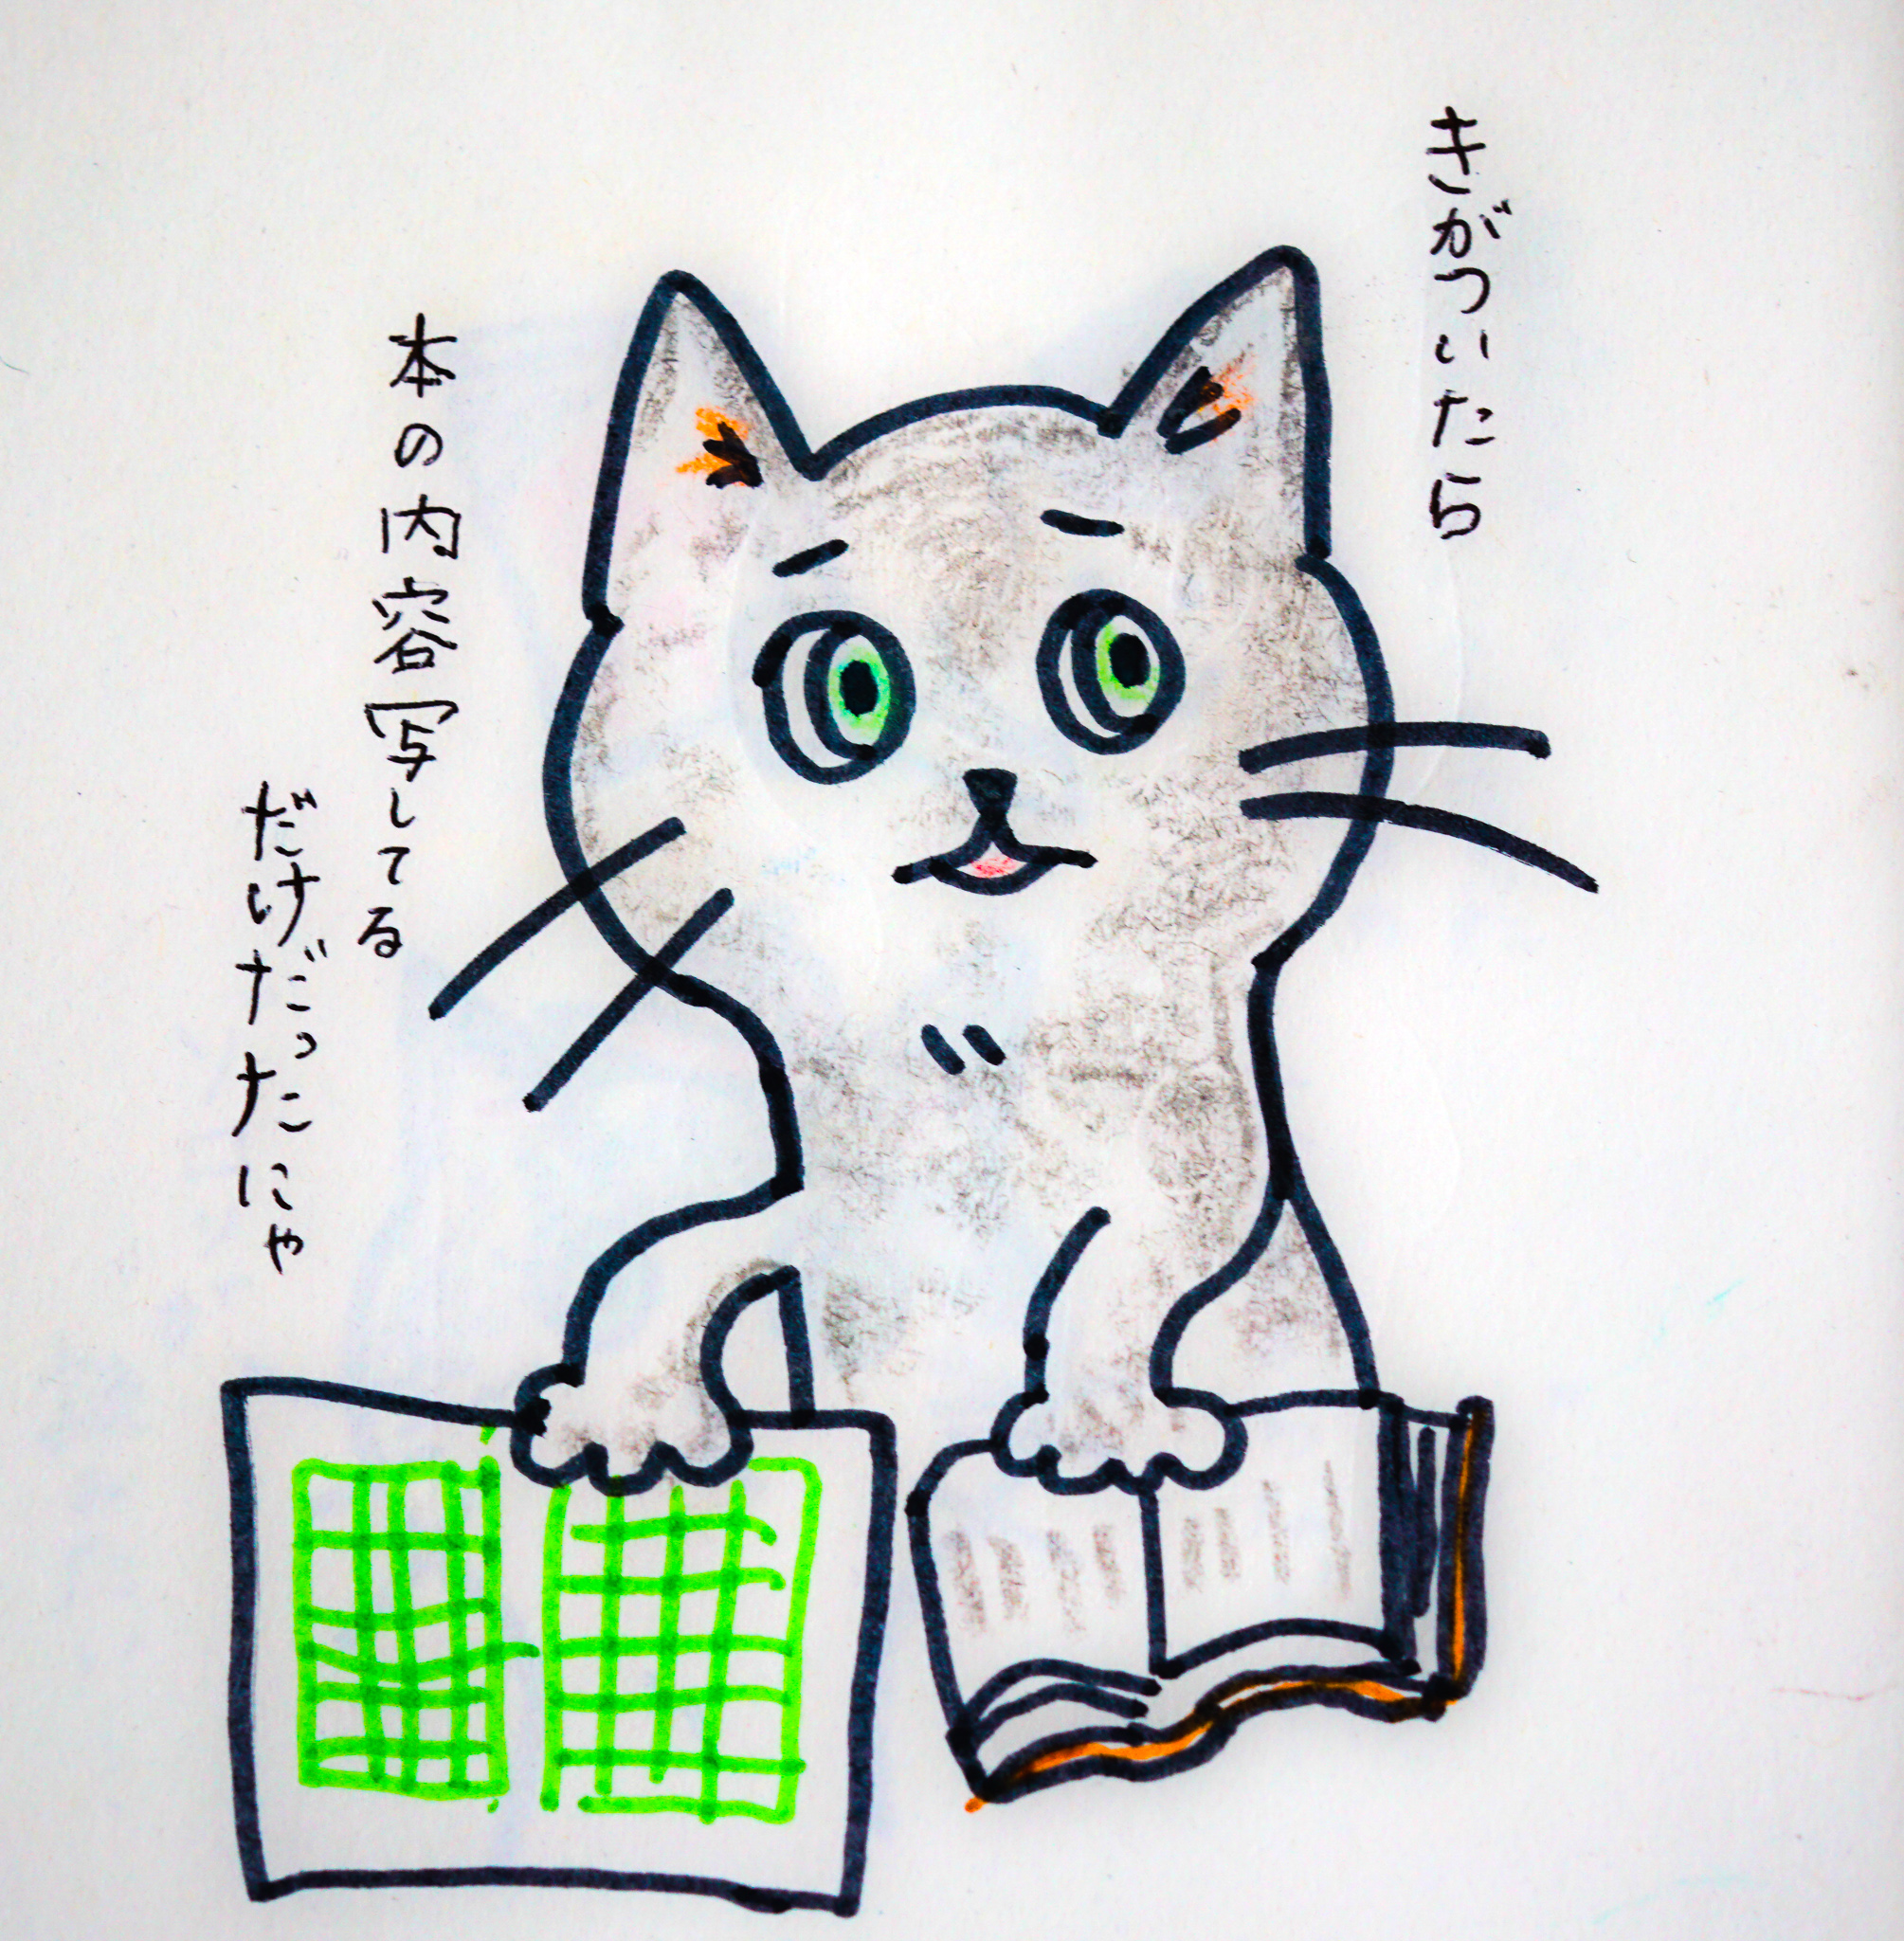 きがついたら
本の内容写してる
だけだったにゃ